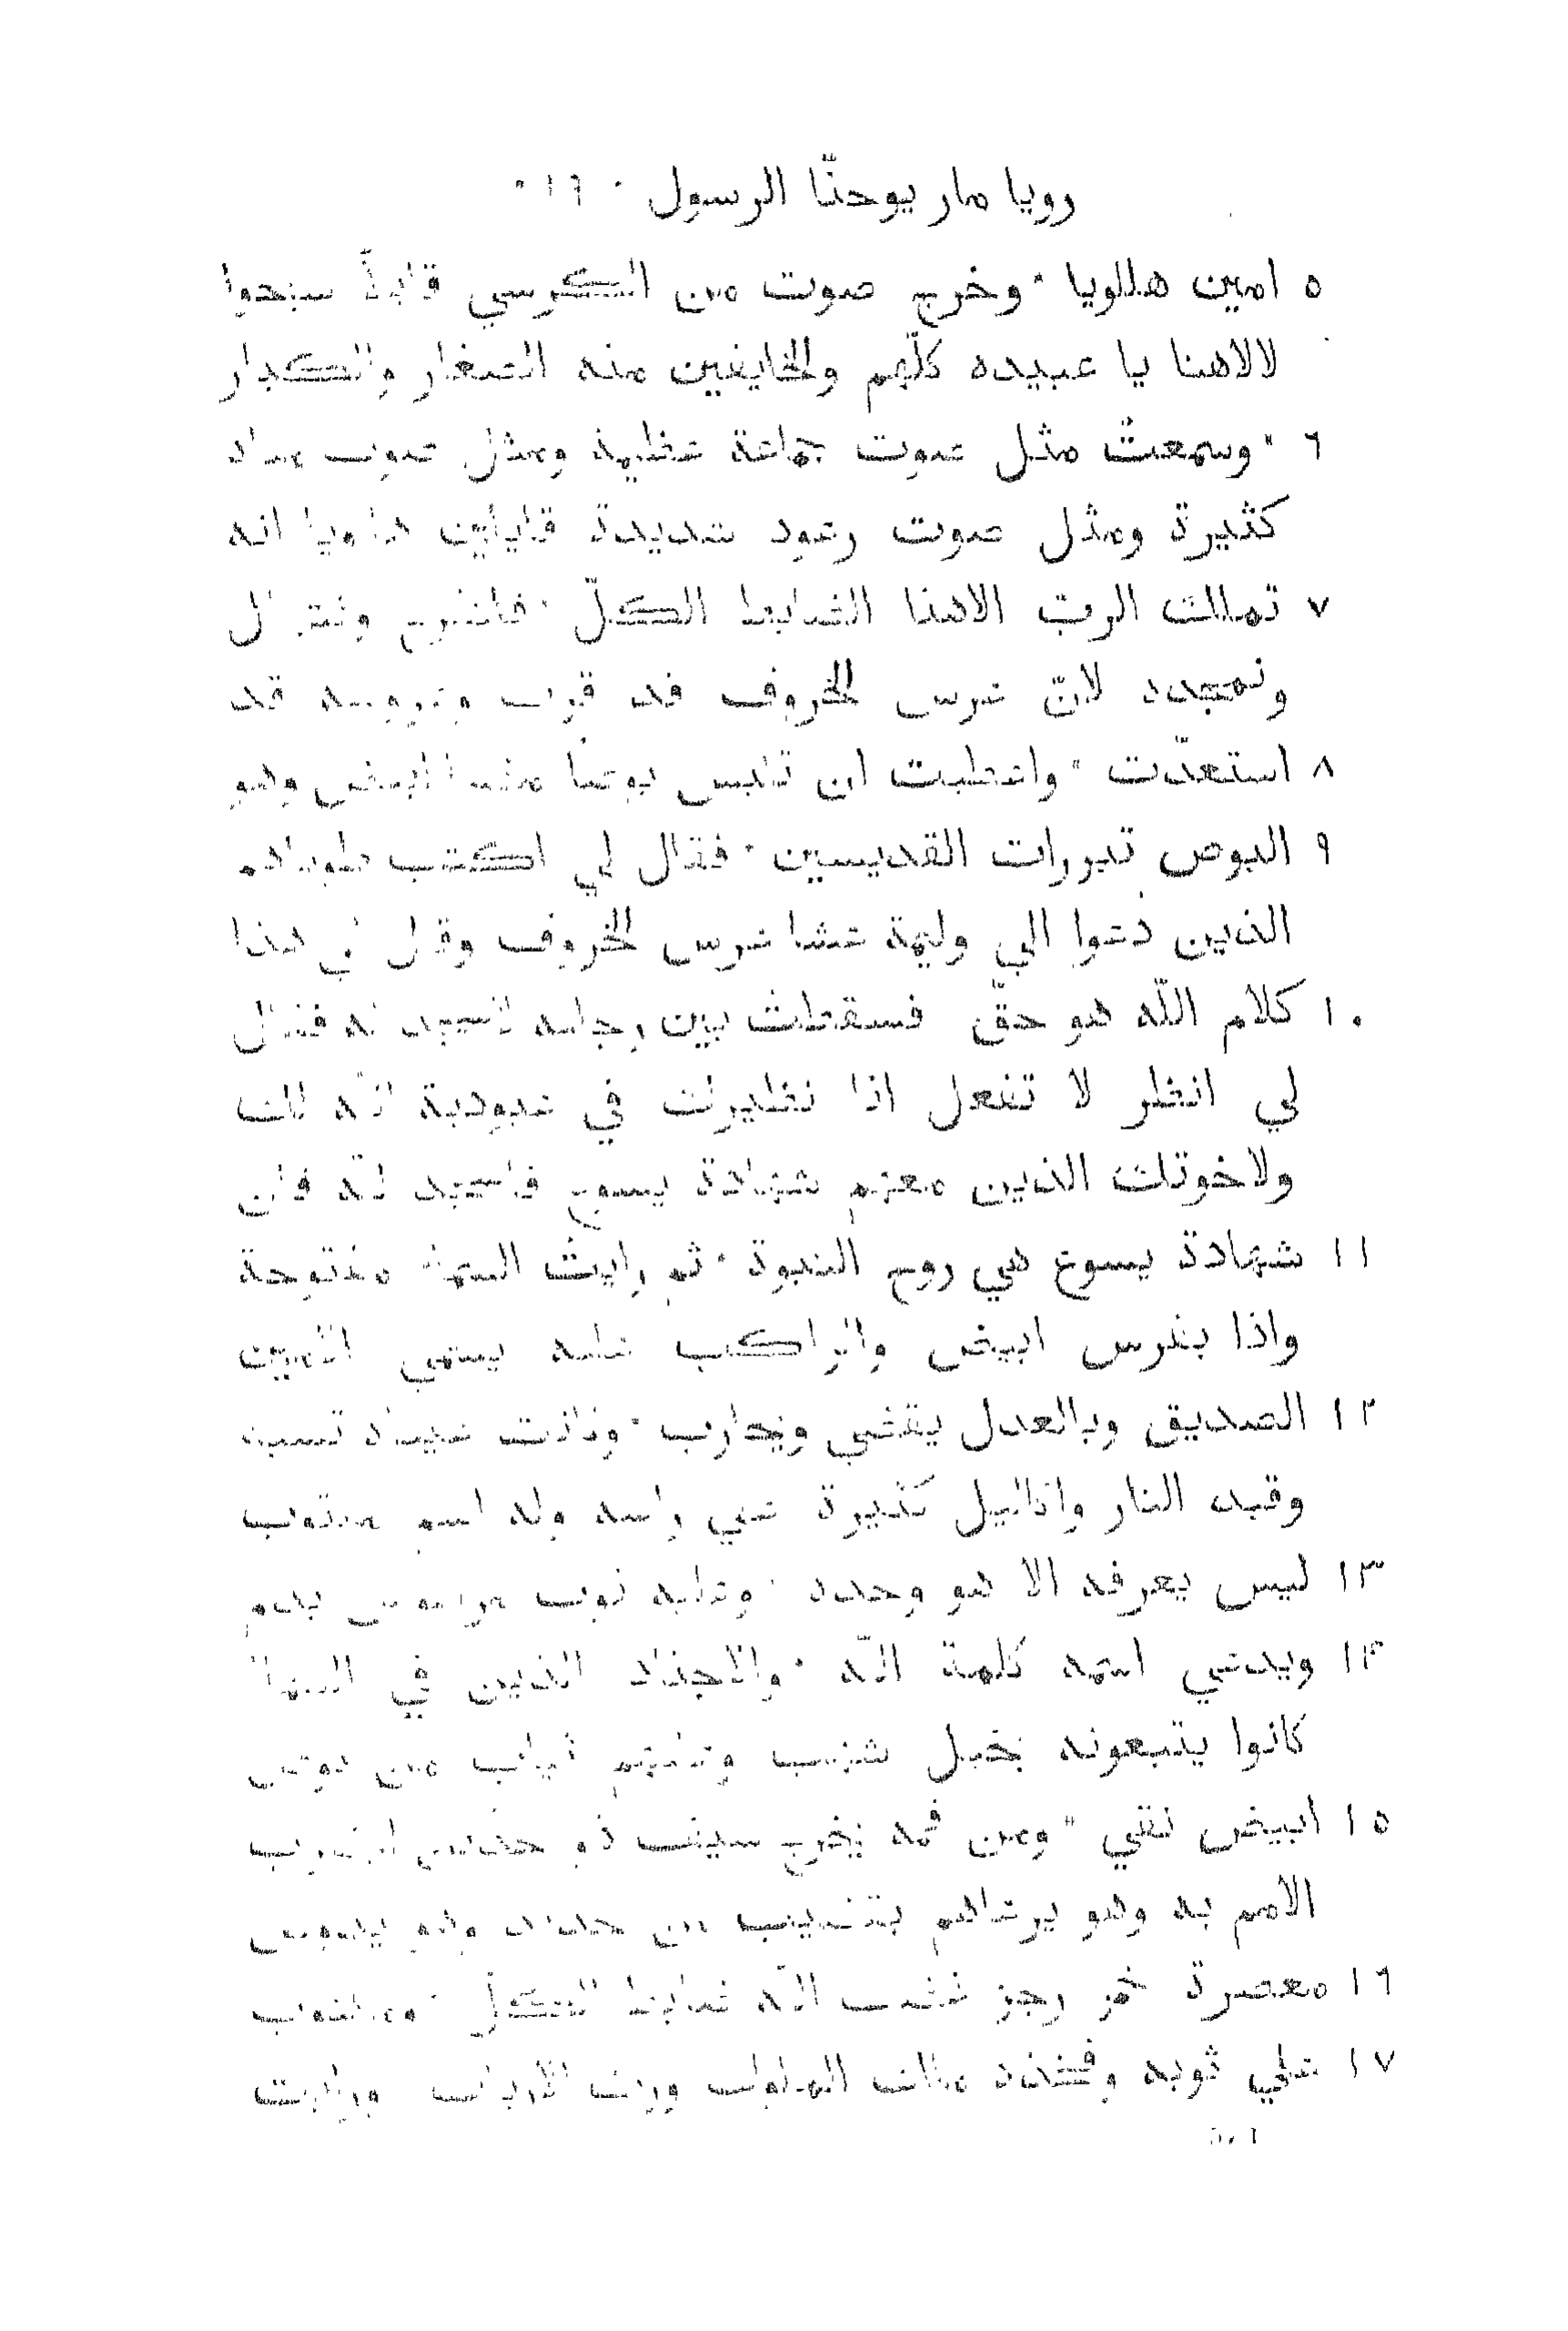 رويا مار يوحنّا الرسول ٠ ١٩ ٠
٥ امين هللويا ٠ وخرج صوت من الكرسي قايلاً سبحوا
لالاهنا يا عبيده كلّهم والخايفين منه الصغار والكبار
٦ ٠ وسمعتُ مثل صوت جماعة عظيمة ومثل صوت مياه
كثيرة ومثل صوت رعود شديدة قايلين هللويا انه
٧ تملك الربّ الاهنا الضابط الكلّ ٠ فلنفرح ونتهلل
ونمجده لانّ عرس الخروف قد قرب وعروسه قد
٨ استعدّت ٠ واعطيت ان تلبس بوصاً ابيض وهو
٩ البوص تبررات القديسين ٠ فقال لي اكتب طوباهم
الذين دُعوا الي وليمة عشا عرس الخروف وقال لي هذا
١٠ كلام اللّه هو حقّ فسقطتُ بين رجليه لاسجد له فقال
لي انظر لا تفعل انا نظيرك في عبودية اللّه لك
ولاخوتك الذين معهم شهادة يسوع فاسجد للّه فان
١١ شهادة يسوع هي روح النبوة ٠ ثم رايتُ السما مفتوحة
واذا بفرس ابيض والراكب عليه يسمي الامين
١٢ الصديق وبالعدل يقضي ويحارب ٠ وكانت عيناه تشبه
وقيد النار واكاليل كثيرة علي راسه وله اسم مكتوب
١٣ ليس يعرفه الا هو وحده ٠ وعليه ثوب بدم
١٤ ويدعي اسمه كلمة اللّه ٠ والاجناد الذين في السما
كانوا يتبعونه بخيل شهب وعليهم ثياب من بوص
١٥ ابيض نقي ٠ ومن فمه يخرج سيف ذو حدّين ليضرب
الامم به وهو يرعاهم بقضيب من حديد وهو يدوس
١٦ معصرة خمر رجز غضب اللّه ضابط الكل ٠ ومكتوب
١٧ علي ثوبه وفخذه ملك الملوك وربّ الارباب ورايت